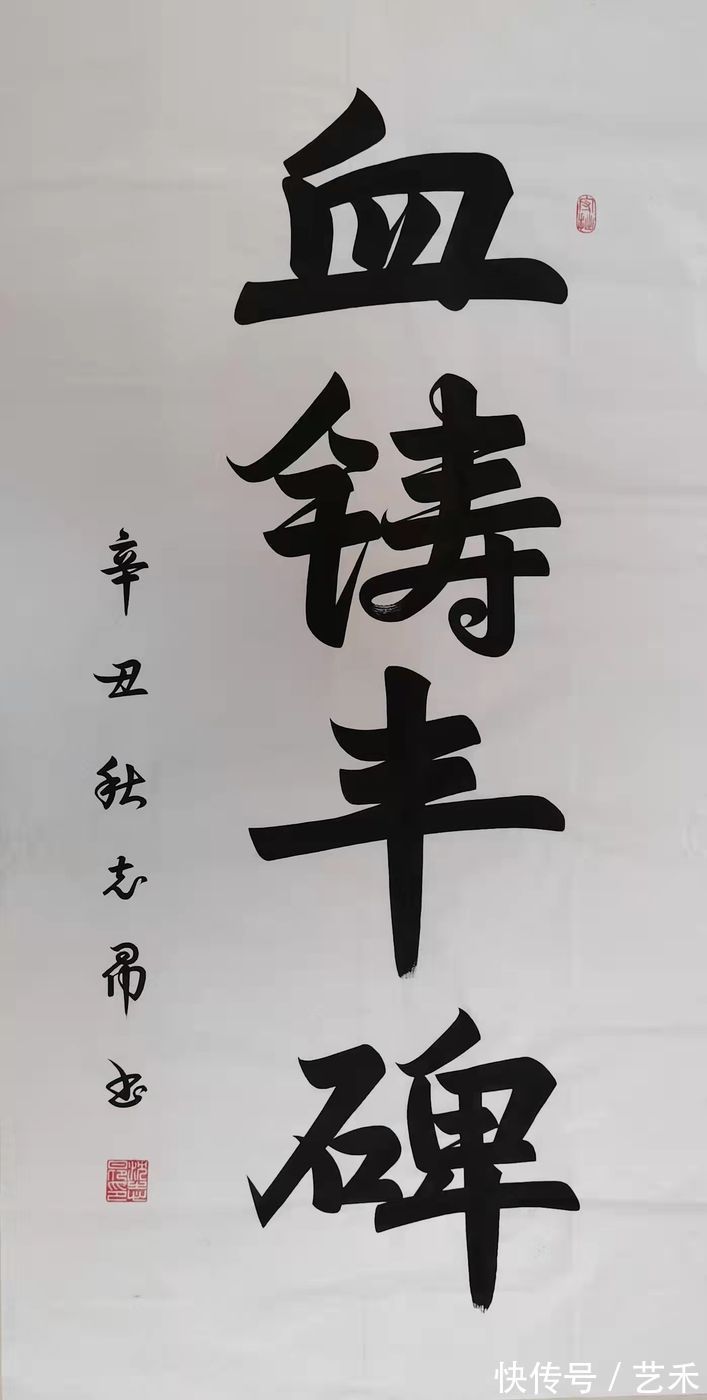 血铸丰碑
辛丑秋志昂书
快传号 / 艺禾